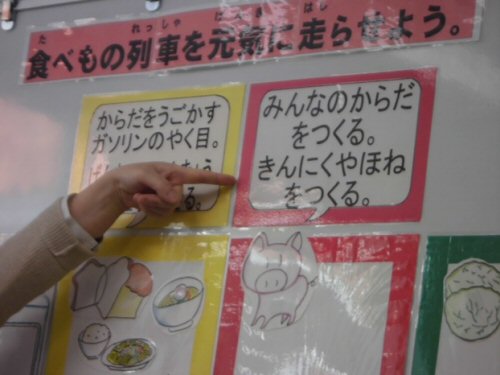 た れっしゃ げんき はし
食べもの列車を元気に走らせよう。
からだをうごかす
ガソリンのやく目。
みんなのからだ
をつくる。
きんにくやほね
をつくる。